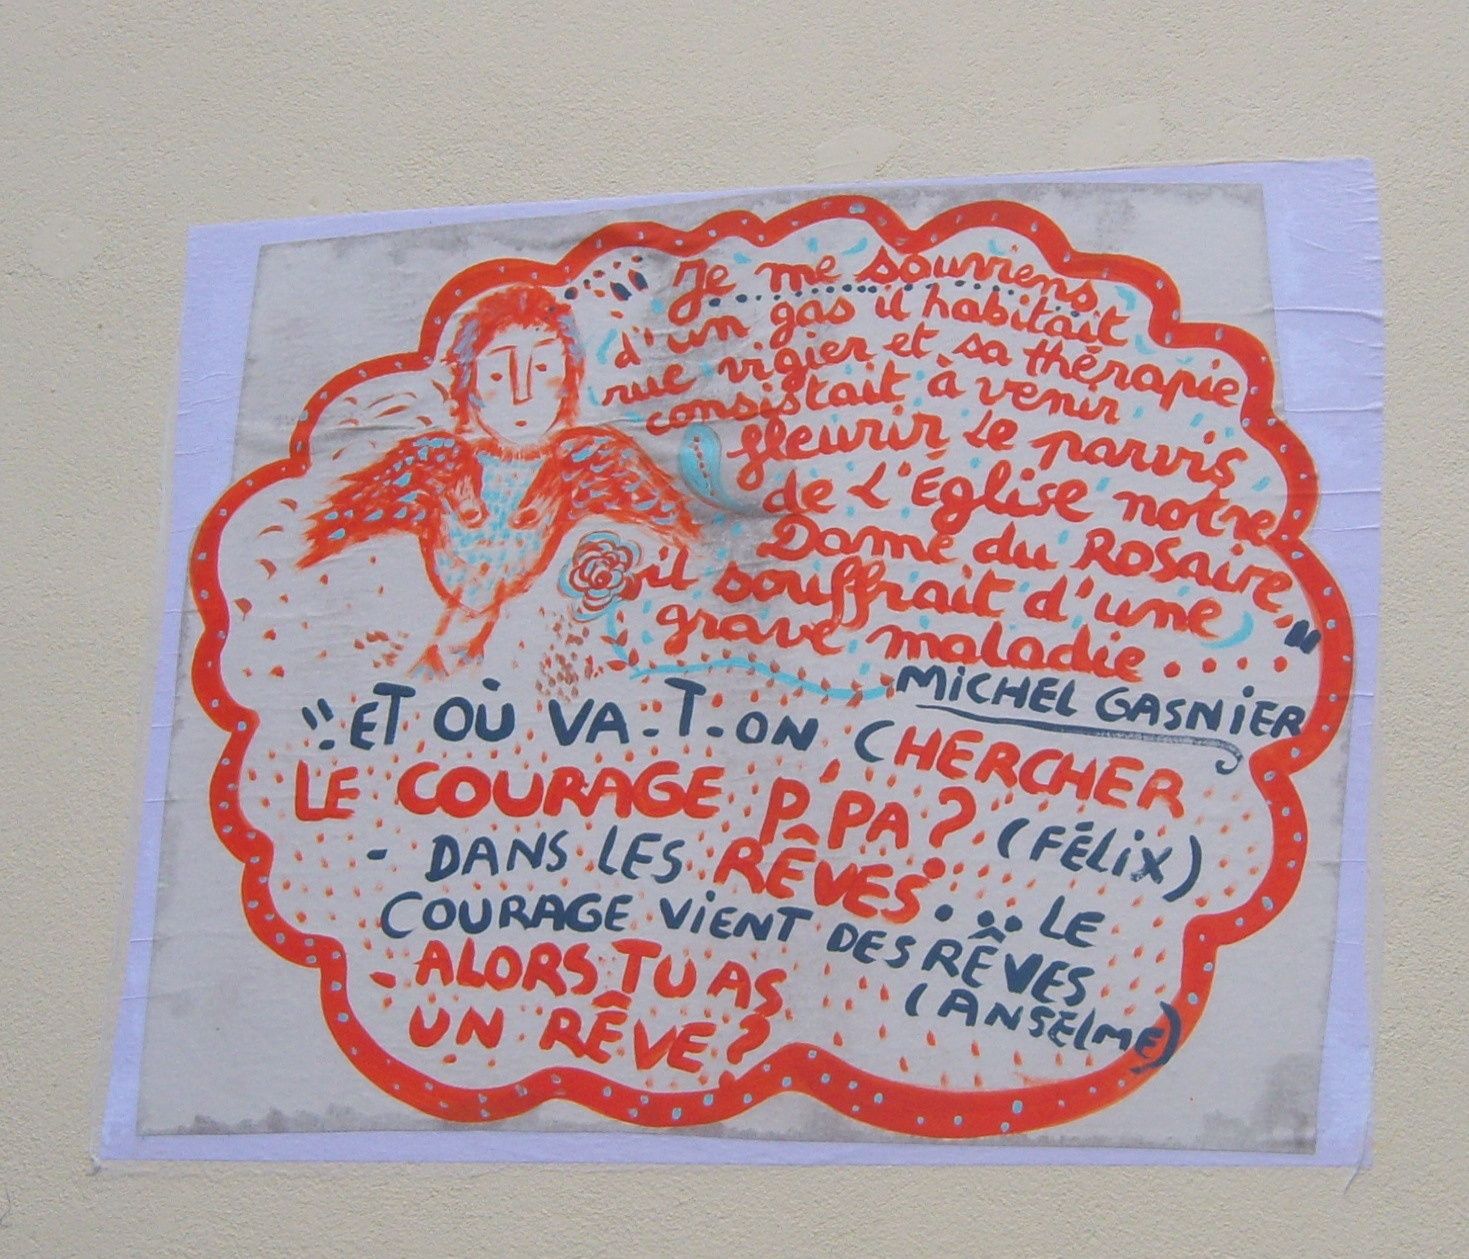 "Je me souviens
d'un gas il habitait
rue vigier et sa thérapie
consistait à venir
fleurir le parvis
de L'Église notre
Dame du Rosaire,
il souffrait d'une
grave maladie....."
MICHEL GASNIER
"ET OÙ VA-T-ON CHERCHER
LE COURAGE P'PA? (FÉLIX)
- DANS LES RÊVES... LE
COURAGE VIENT DES RÊVES
(ANSELME)
- ALORS TU AS
UN RÊVE?